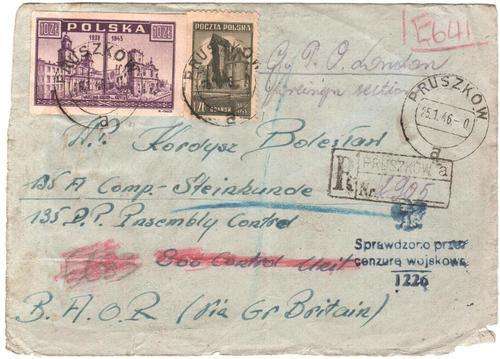 10 ZŁ POLSKA 10 ZŁ
1939 1945
POCZTA POLSKA
GDAŃSK
PRUSZKÓW
PRUSZKÓW
E641
c/o P.O. London
Foreign section
PRUSZKÓW
25.1.46-0
a
Kordysz Bolesław
135 A Comp. - Steinkunde
135 D.P. Assembly Control
800 Control Unit
B.A.O.R (Via Gr Britain)
R PRUSZKÓW a
Nr.
Sprawdzono przez
cenzurę wojskową
1226